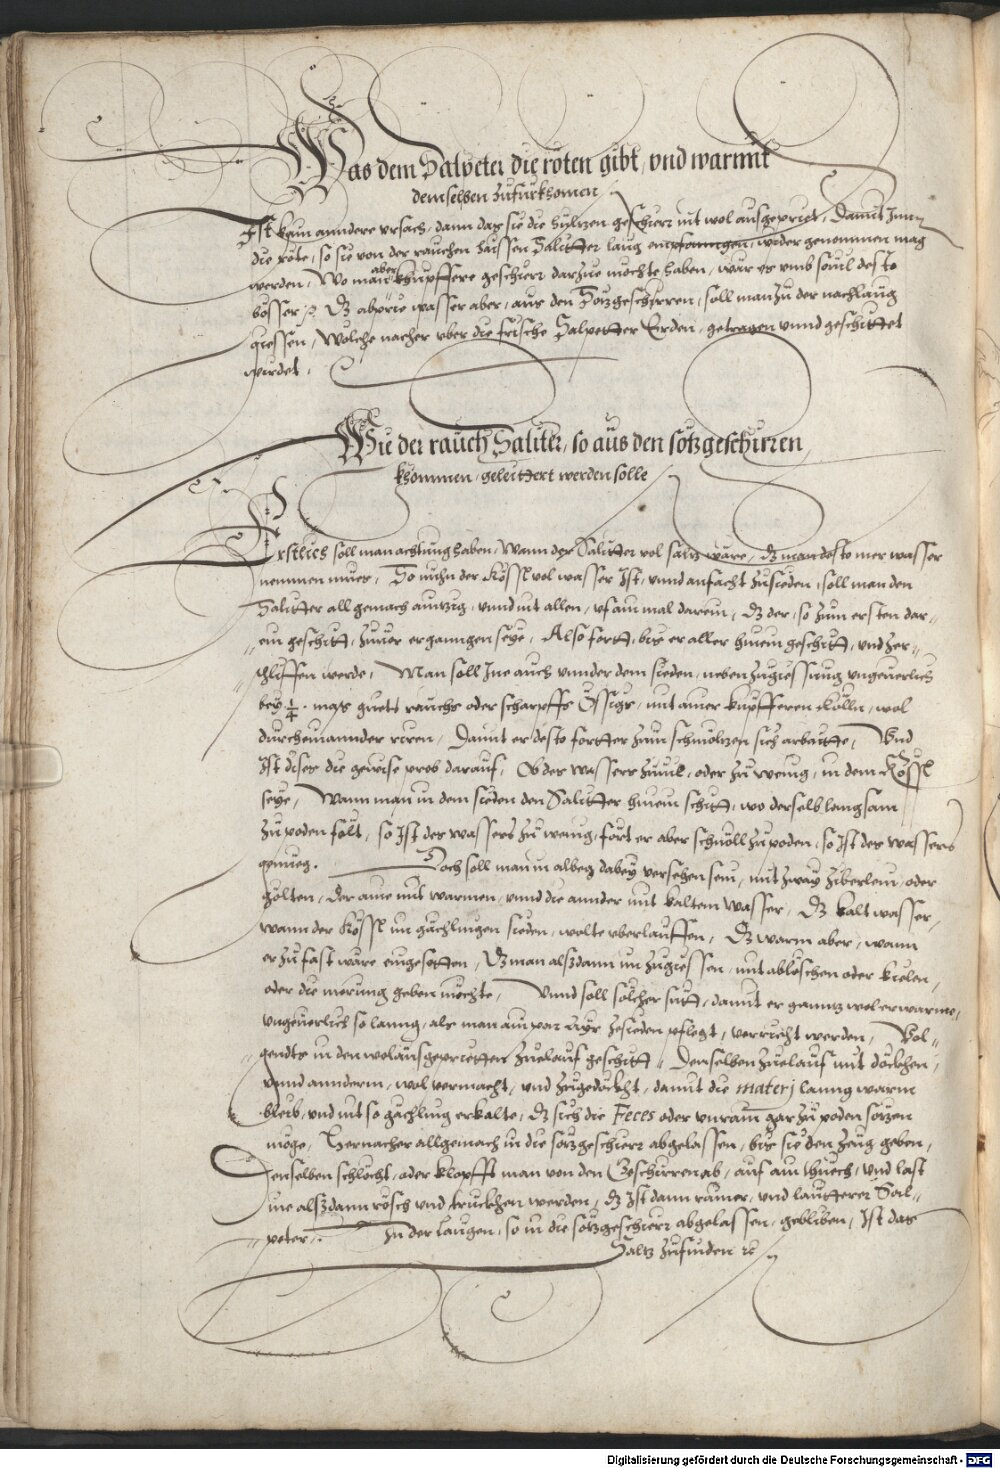 Was dem Salpeter die röten gibt, vnd warmit
demselben zufürkhomen
Ist kain anndere vrsach, dann das sie die hültzen geschirr nit wol ausgeprüet, damit Inen
die röte, so sie von der rauchen haissen Salitter laug empfanngen, wider genomen mag
werden, Wo man aber khupffere geschirr darzue möchte haben, wär es vmb souil desto
bösser, Dz abprüe wasser aber, aus den Sötzgeschirren, soll man zu der nachlaug
giessen, Wölche nacher vber die frische Salpetter Erden, getragen vnnd geschüttet
wirdet.
Wie der rauch Saliter, so aus den sötzgeschirren
khommen, geleuttert werden solle
Erstlich soll man achtung haben, Wann der Salitter vol saltz wäre, dz man desto mer wasser
nemmen mues, So nuhn der Kössl vol wasser Ist, vnnd anfacht zusieden, soll man den
Salitter all gemach aintzig, vnnd nit allen, vf ain mal darein, dz der, so zum ersten dar-
ein geschitt, zuuor erganngen seye, Also fortt, bis er aller hinein geschitt, vnd zer-
schliffen werde, Man soll Ine auch vnnder dem sieden, neben zugiessung vngeuerlich
bey 1/4 mas guets rauchs oder scharpffs Össigs, mit ainer kupfferen Költn, wol
durcheinannder rieren, Damit er desto fortter zum schmöltzen sich arbaitte, Vnd
Ist dises die gewise prob darauf, Ob des wassers zuuil, oder zu wenig, in dem Kössl
seye, Wann man in dem sieden den Salitter hinein schitt, wo derselb langsam
zu poden folt, so Ist des wassers zu wenig, fört er aber schnöll zu poden, so Ist des wassers
genueg. Doch soll man in albeg dabey versehen sein, mit zway ziberlein, oder
gölten, der aine mit warmen, vnnd die annder mit kaltem wasser, Dz kalt wasser,
wann der Kössl im gächlingen sieden, wolte vberlauffen, Dz warm aber, wann
er zu fast wäre eingesotten, Dz man alßdann im zugiessen, mit ablöschen oder kielen,
oder die merung geben möchte, Vnnd soll solcher sutt, damit er ganntz wol erwarme,
vngeuerlich so lanng, als man ain par Ayr zesieden pflegt, verricht werden, Vol-
gendts in den wolausgeprietten zuelauf geschitt, Denselben zuelauf mit döckhen
vnnd annderm, wol vermacht, vnd zugedöckht, damit die materj lanng warm
bleib, vnd nit so gächling erkalte, dz sich die Feces oder vnraim gar zu poden sötzen
möge, Hernacher allgemach in die sötzgeschirr abgelassen, bis sie den zeug geben,
Denselben schlecht, oder klopfft man von den Geschirren ab, auf ain thuech, vnd last
ine alßdann rösch vnd truckhen werden, dz Ist dann rainer, vnd lautterer Sal-
peter. In der laugen, so in die sötzgeschirr abgelassen, gebliben, Ist das
Saltz zufinden
Digitalisierung gefördert durch die Deutsche Forschungsgemeinschaft - DFG